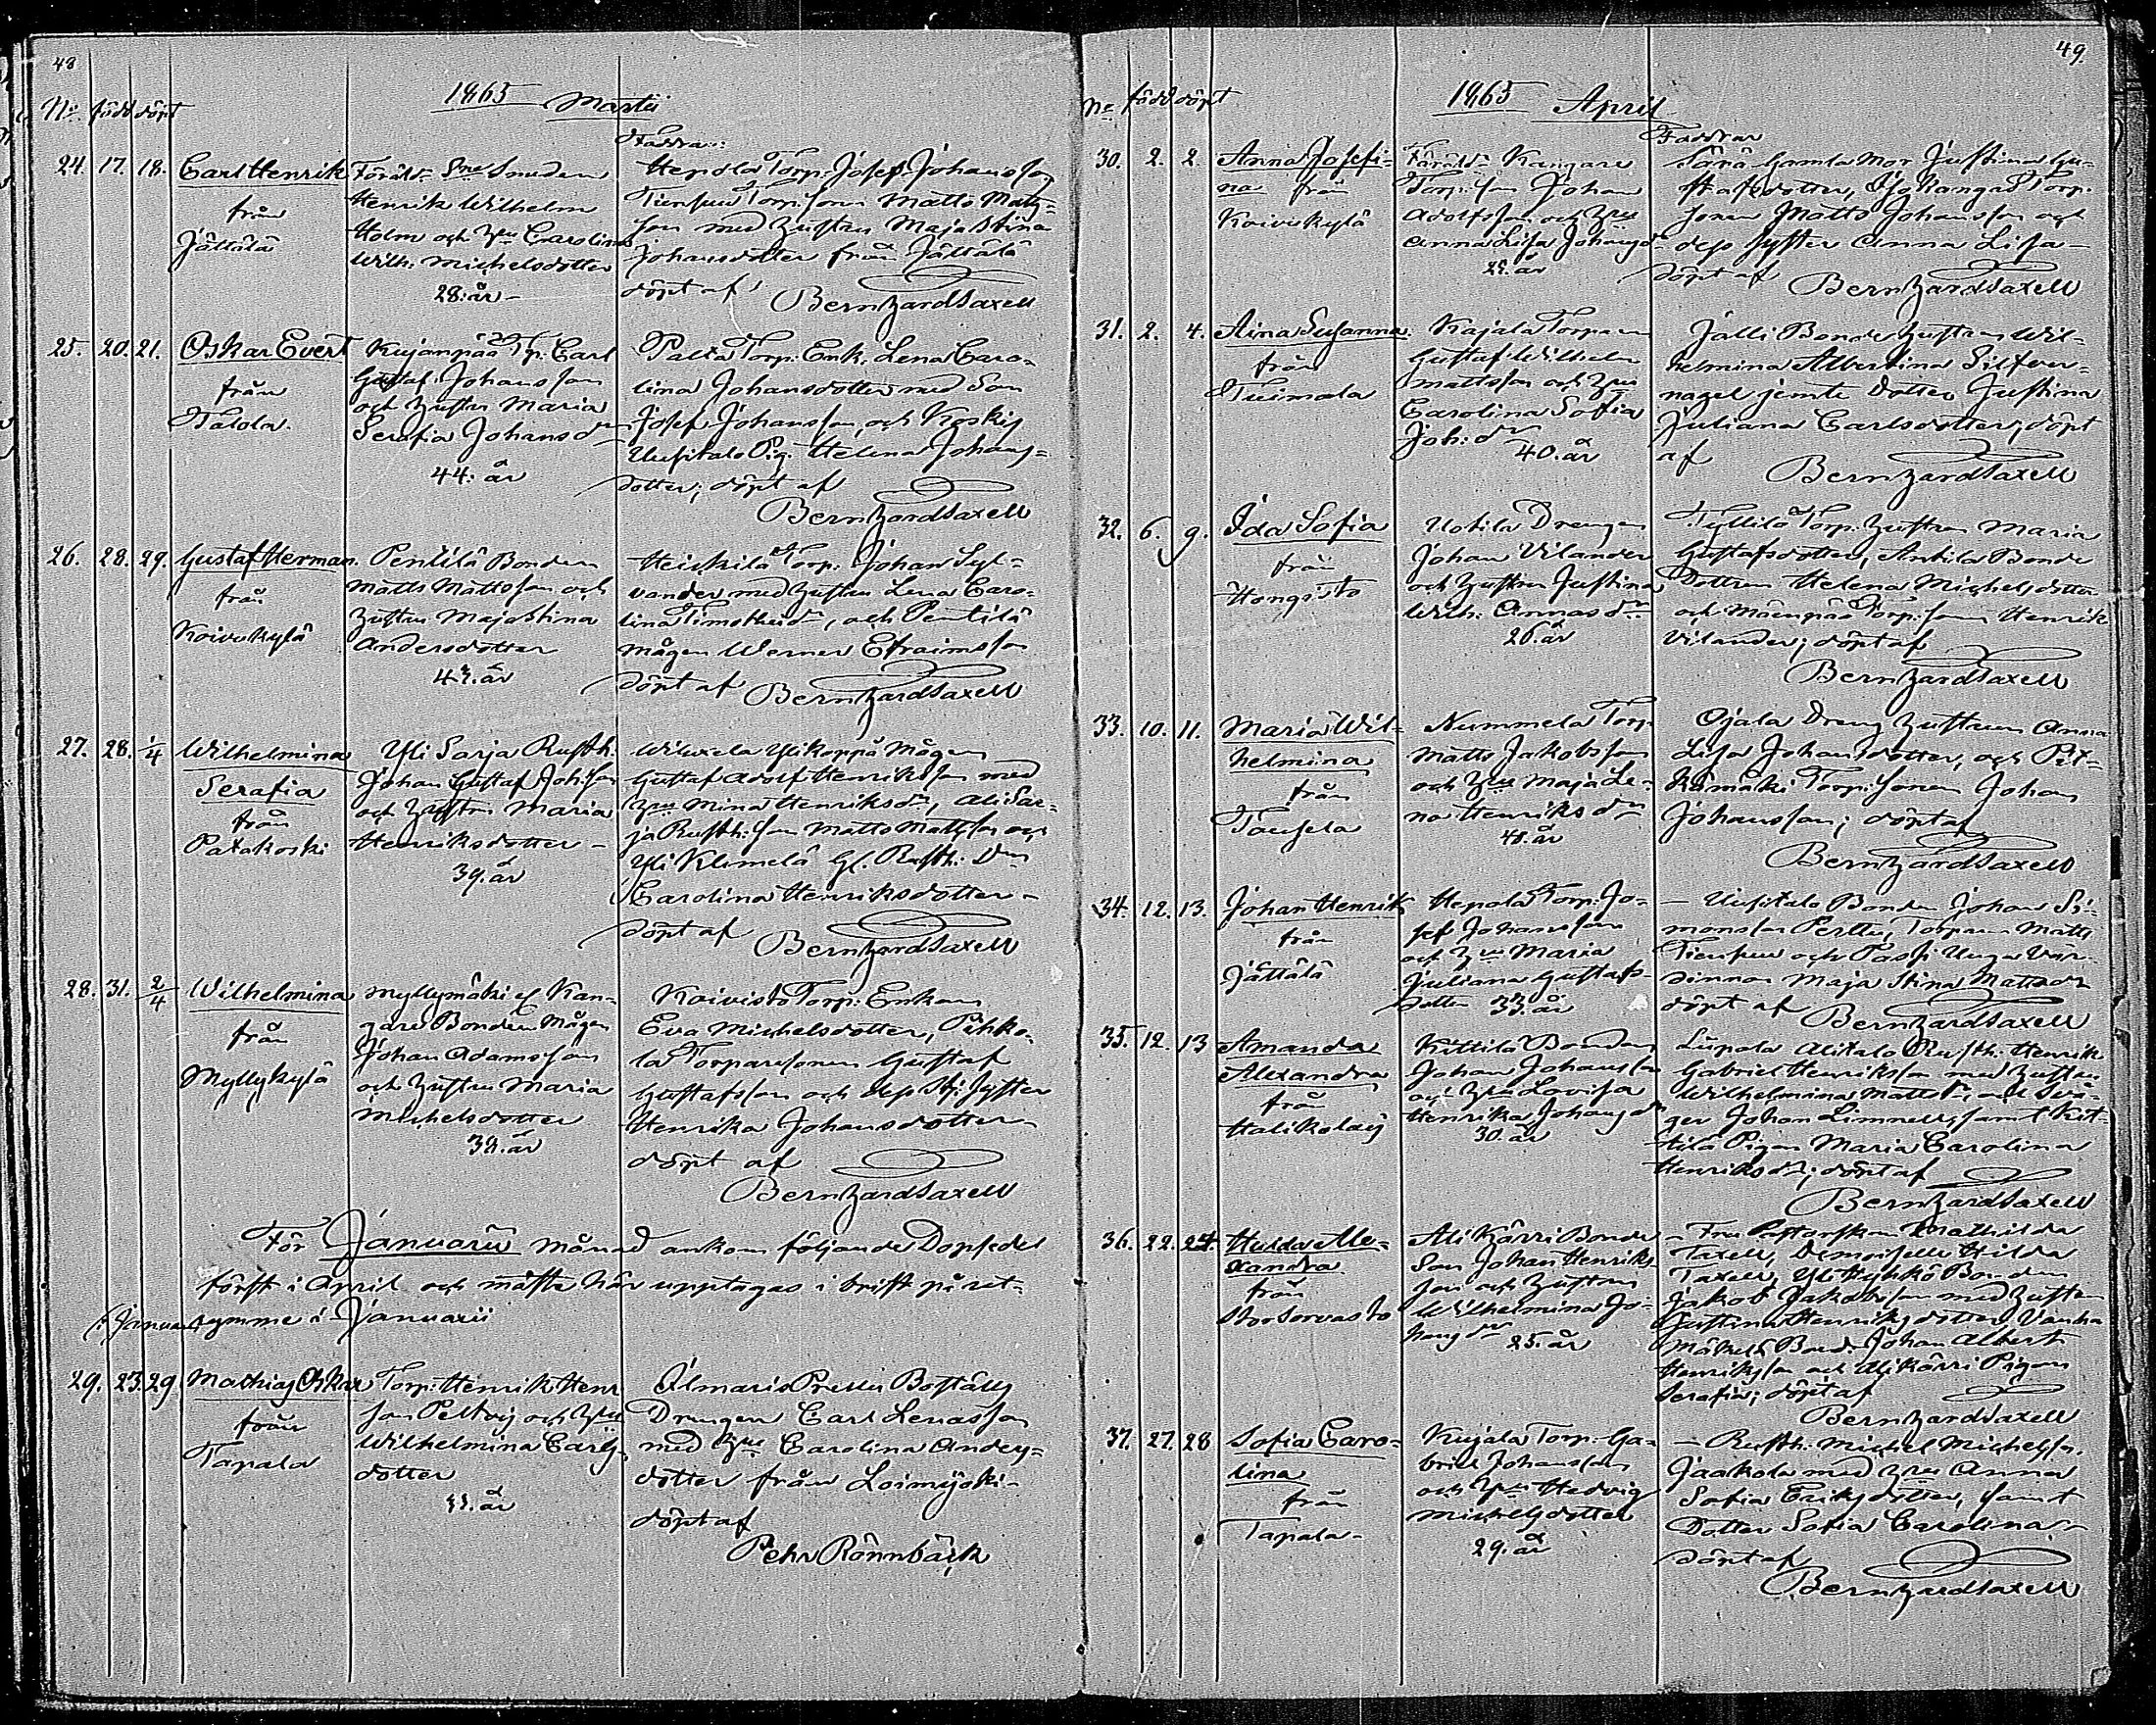 48
1865 Martii
No. född döpt
Faddrar:
24. 17. 18. Carl Henrik
från
Jättälä
Föräldr: Smeden
Henrik Wilhelm
Holm och Hru Carolina
Wilh: Michelsdotter
28. år
Hepola Torp: Josef Johansson
Tienpuu Torp: Sonen Matts Matts=
son med hustru Maja Stina
Johansdotter från Jättälä
döpt af
Bernhard Taxell
25. 20. 21. Oskar Evert
från
Talola.
Kujanpää Tp: Carl
Gustaf Johansson
och hustru Maria
Serafia Johansdr
44. år
Palta Torp: Enk. Lena Caro=
lina Johansdotter med Son
Josef Johansson, och Koskis
Uusitalo Pig. Helena Johans=
dotter; döpt af
Bernhard Taxell
26. 28. 29. Gustaf Herman.
från
Koivukylä
Pentilä Bonden
Matts Mattsson och
hustru Maja Stina
Andersdotter
43. år
Heickilä Torp. Johan Syl=
vander med hustru Lena Caro=
lina Timotheidr, och Pentilä
mågen Werner Efraimsson
döpt af
Bernhard Taxell
27. 28. 1/4 Wilhelmina
Serafia
från
Patakoski
Yli Sarja Rusth:
Johan Gustaf Johsson
och hustru Maria
Henriksdotter
39. år
Ylikoppä Mågen
Gustaf Adolf Henriksson med
Hru Mina Henriksdr, Ali Sar=
ja Rusth: Son Matts Mattsson och
Yli Klemelä Gl. Rusth: Dr
Carolina Henriksdotter
döpt af
Bernhard Taxell
28. 31. 2/4 Wilhelmina
från
Myllykylä
Myllymäki el Kan=
gare Bonden Mågen
Johan Adamsson
och hustru Maria
Michelsdotter
39. år
Koivisto Torp: Enkan
Eva Michelsdotter, Pihko=
la Torparesonen Gustaf
Gustafsson och dess Syster
Henrika Johansdotter
döpt af
Bernhard Taxell
För Januarii månad ankom följande Dopsedel
först i April och måste här upptagas i brist på ut=
rymme i Januarii
29. 23. 29 Mathias Oskar
från
Tapala
Torp: Henrik Henr
son Peltvij och Hru
Wilhelmina Carls=
dotter
33. år
Ilmaris Preller Boställs
Drengen Carl Lenasson
med Hru Carolina Anders=
dotter från Loimijoki
döpt af
Pehr Rönnbäck
49.
1865 April
No. född döpt
Faddrar
30. 2. 2. Anna Josefi=
na från
Koivukylä
Föräldr: Kangare
Torp: Son Johan
Adolfsson och Hru
Anna Lisa Johansdr
25. år
Särä Gamla Mor Justina Gu=
stafsdotter, Isokangas Torp:
Sonen Matts Johansson och
dess syster Anna Lisa
döpt af
Bernhard Taxell
31. 2. 4. Aina Susanna.
från
Tuimala
Kajala Torparen
Gustaf Wilhelm
Mattsson och Hru
Carolina Sofia
Joh: dr
40. år
Jalli Bonde hustrun Wil=
helmina Albertina Silfver=
nagel jemte dotter Justina
Juliana Carlsdotter; döpt
af
Bernhard Taxell
32. 6. 9. Ida Sofia
från
Hongisto
Uotila Drengen
Johan Vilander
och hustru Justina
Wilh: Annasdr
26. år
Tyllilä Torp: hustrun Maria
Gustafsdotter, Antila Bonde
Dottren Helena Michelsdotter
och Mäenpää Torp: Sonen Henrik
Vilander; döpt af
Bernhard Taxell
33. 10. 11. Maria Wil=
helmina
från
Tausela
Nummela Torp:
Matts Jakobsson
och Hru Maja Le=
na Henriksdr
48. år
Ojala Dreng hustrun Anna
Lisa Johansdotter, och Pit=
kämäki Torp: Sonen Johan
Johansson; döpt af
Bernhard Taxell
34. 12. 13. Johan Henrik
från
Jättälä
Hepola Torp: Jo=
sef Johansson
och Hru Maria
Juliana Gustafs=
dotter 33. år
Uusitalo Bonden Johan Si=
monsson Perttu, Torparen Matts
Tienpuu och Passi Unga Vär=
dinnan Maja Stina Mattsdr
döpt af
Bernhard Taxell
35. 12. 13 Amanda
Alexandra
från
Halikolais
Kittilä Bonden
Johan Johansson
och Hru Lovisa
Henrika Johansdr
30. år
Lupala Alitalo Rusth: Henrik
Gabriel Henriksson med hustru
Wilhelmina Mattsdr, och Svå=
ger Johan Limnell, samt Kit=
tilä Pigan Maria Carolina
Henriksdr; döpt af
Bernhard Taxell
36. 22. 24. Hulda Ale=
xandra
från
Storsorvasto
Ali Kärri Bonde
Son Johan Henriks=
son och hustrun
Wilhelmina Jo=
hansdr 25. år
Fru Pastorskan Mathilda
Taxell, Demoiselle Hilda
Taxell, Yli Hyhkö Bonden
Jakob Jakobsson med hustru
Justina Henriksdotter, Vanha
Mäkelä Bond. Johan Albert
Henriksson och Alikärri Pigan
Serafia; döpt af
Bernhard Taxell
37. 27. 28 Sofia Caro=
lina
från
Tapala
Kujala Torp: Ga=
briel Johansson
och Hru Hedvig
Michelsdotter
29. år
Rusth: Michel Michelsson
Jaakola med Hru Anna
Sofia Eriksdotter, samt
Dotter Sofia Carolina
döpt af
Bernhard Taxell